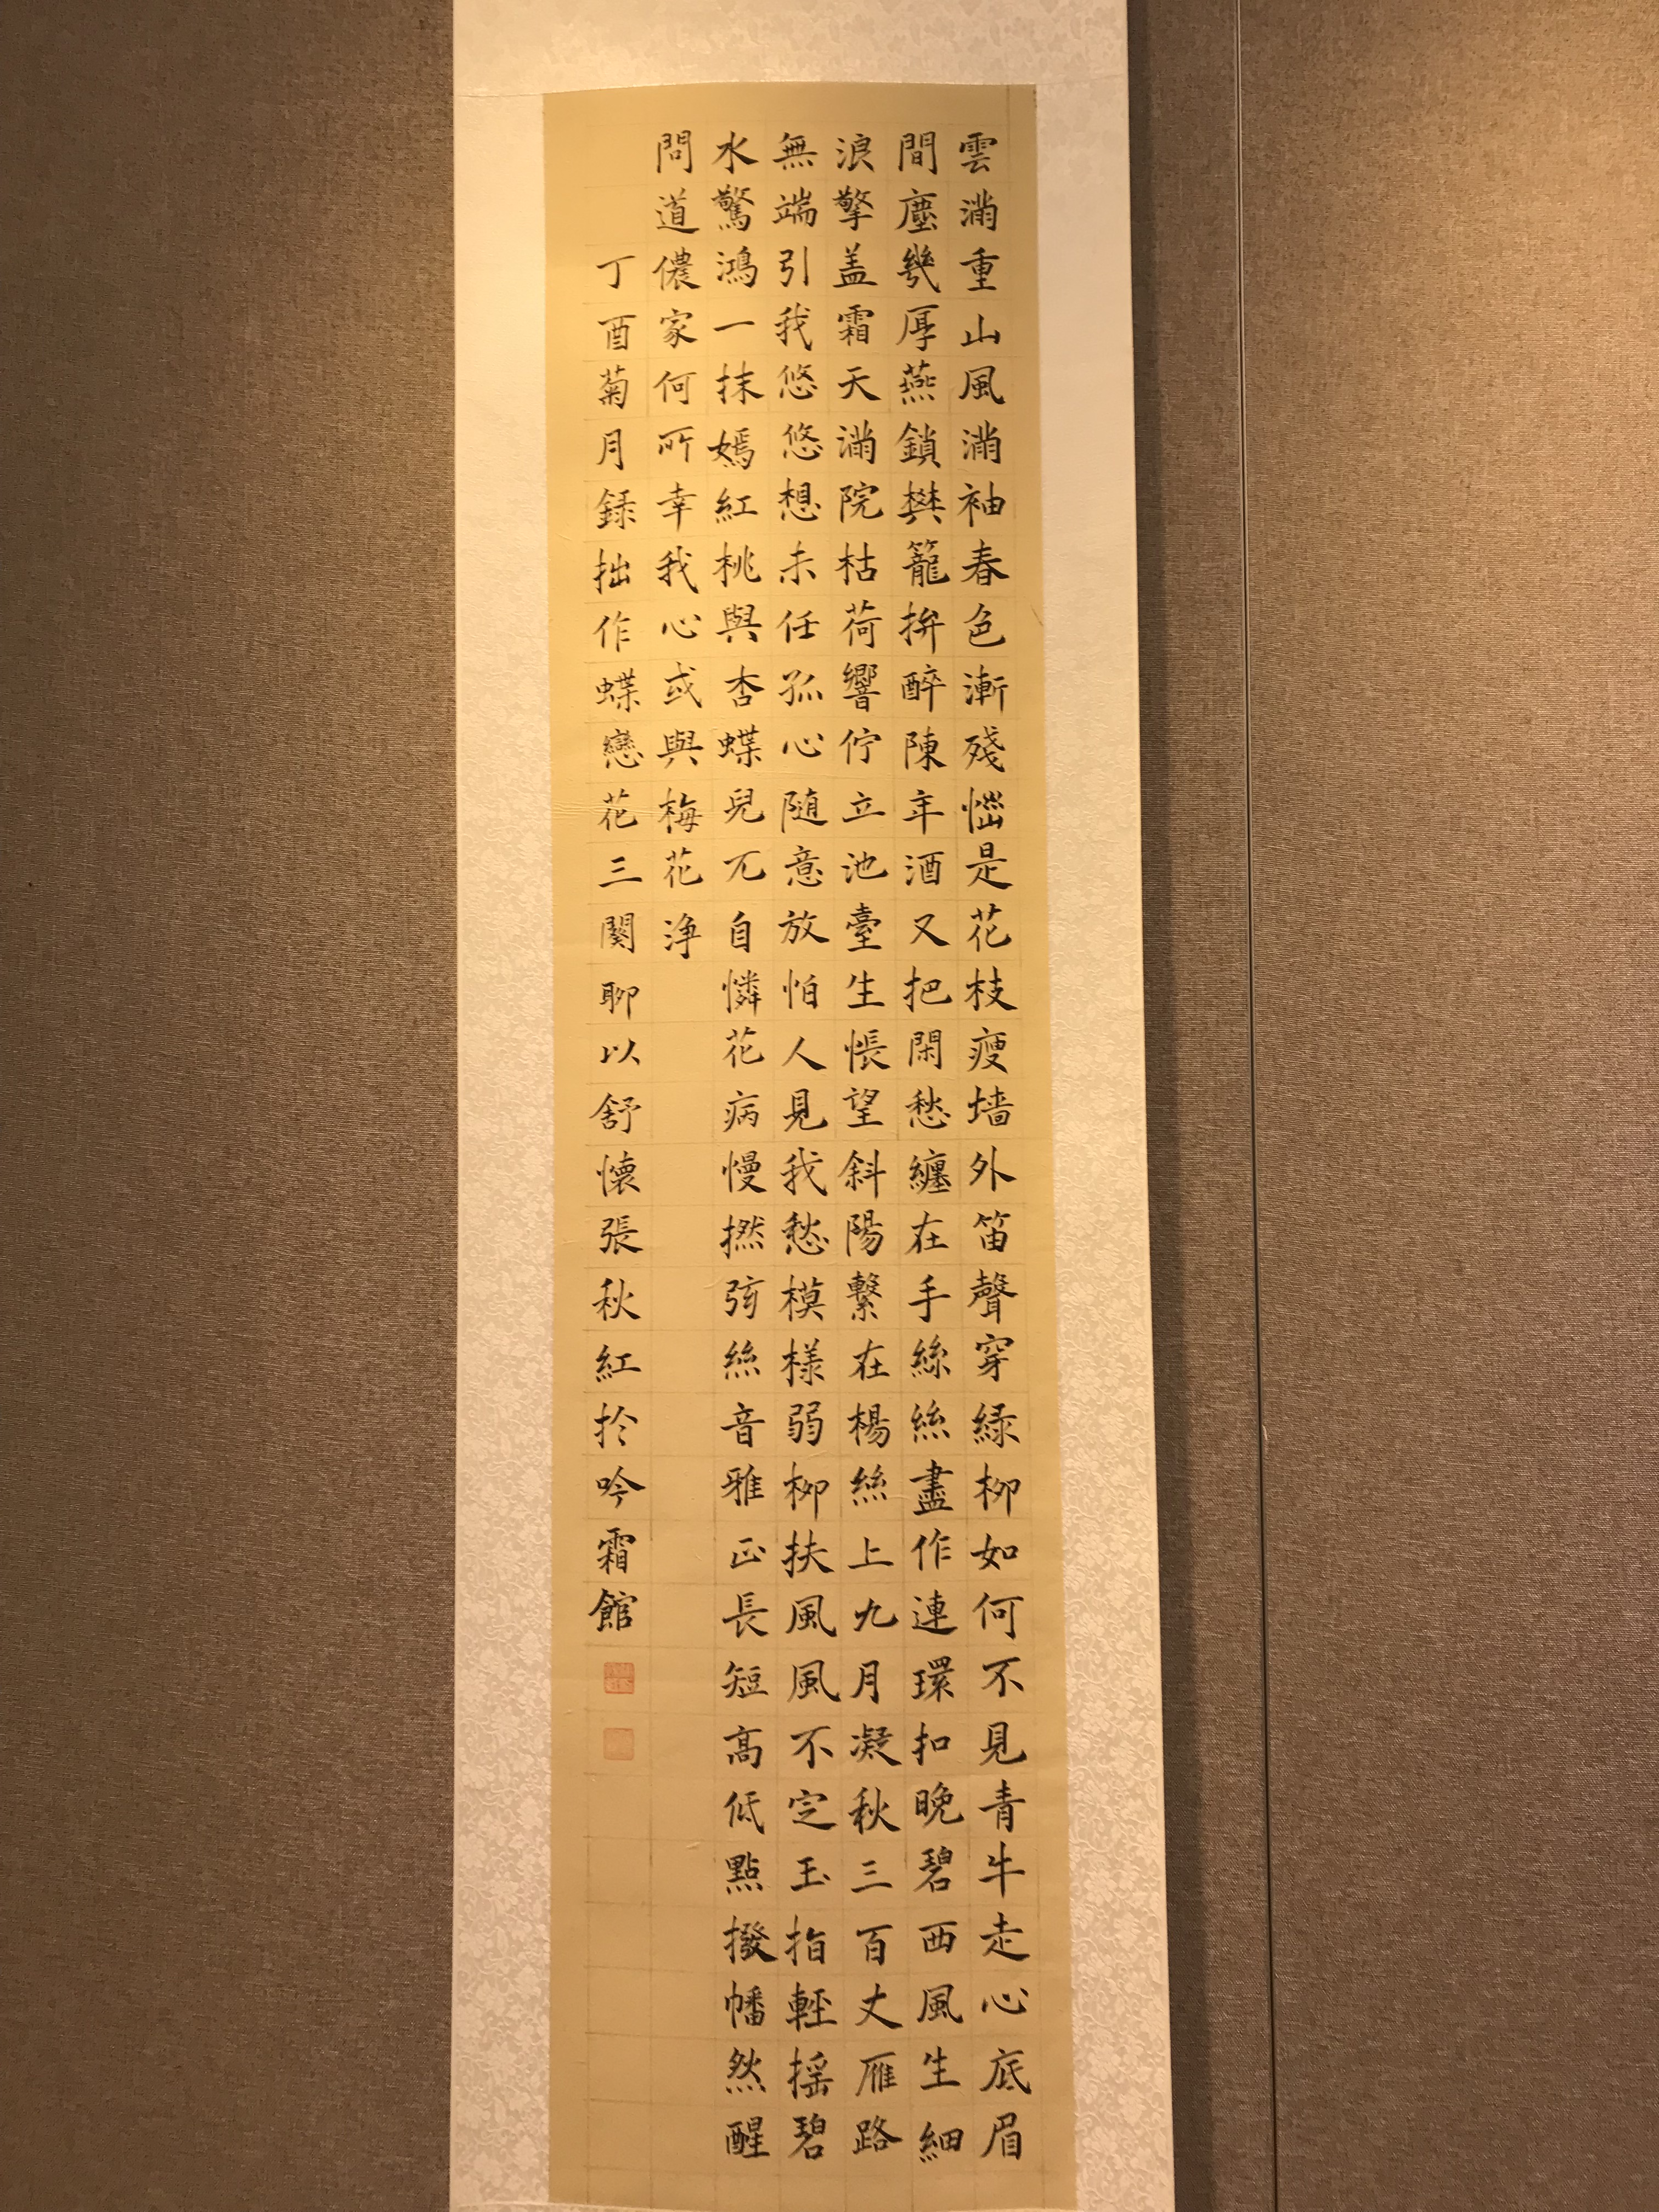 雲滿重山風滿袖春色漸殘惱是花枝瘦墻外笛聲穿緑柳如何不見青牛走心底眉
間塵幾厚燕鎖樊籠拚醉陳年酒又把閑愁纏在手絲絲盡作連環扣晚碧西風生細
浪擎盖霜天滿院枯荷響佇立池臺生悵望斜陽繫在楊絲上九月凝秋三百丈雁路
無端引我悠悠想未任孤心随意放怕人見我愁模樣弱柳扶風風不定玉指輕摇碧
水驚鴻一抹嫣紅桃與杏蝶兒兀自憐花病慢撚弦絲音雅正長短高低點撥幡然醒
問道儂家何所幸我心或與梅花浄
丁酉菊月録拙作蝶戀花三闋聊以舒懷張秋紅扵吟霜館